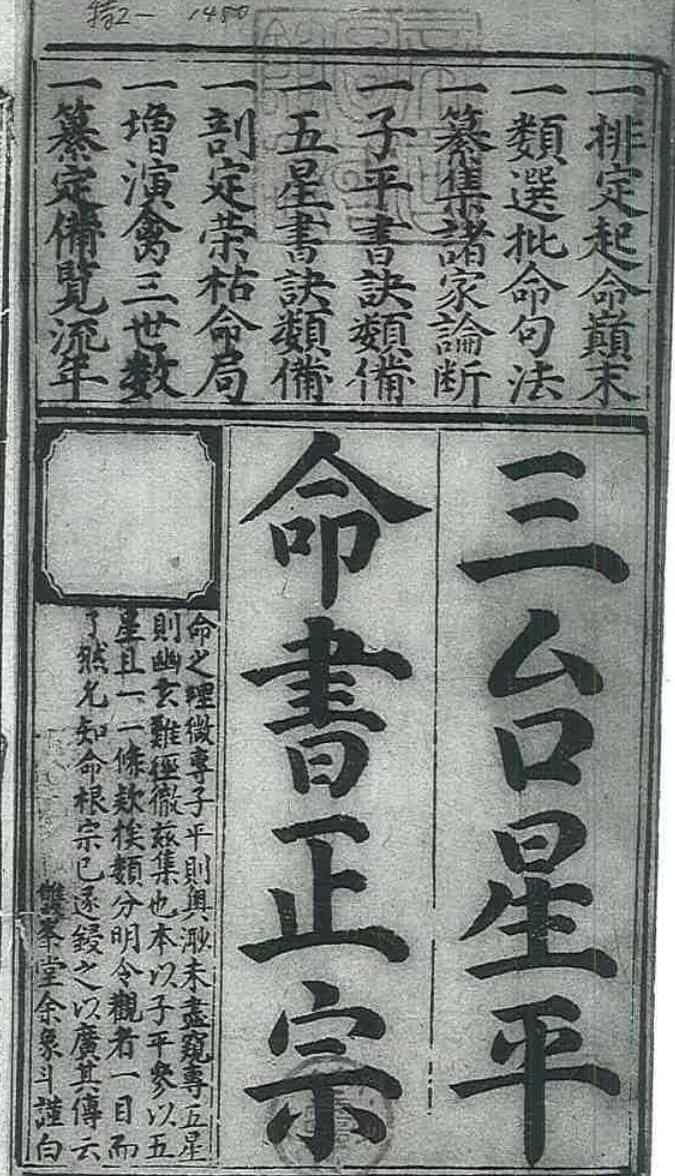 特2-1480
一排定起命巔末
一類選批命句法
一纂集諸家論断
一子平書訣類備
一五星書訣類備
一剖定荣枯命局
一增演禽三世数
一纂定備覽流年
三台星平
命書正宗
命之理微專子平則奥渺未盡窺專五星
則幽玄難徑徹兹集也本以子平參以五
星且一一條欵挨類分明令觀者一目而
了然允知命根宗已遂鋟之以廣其傳云
雙峯堂余象斗謹白